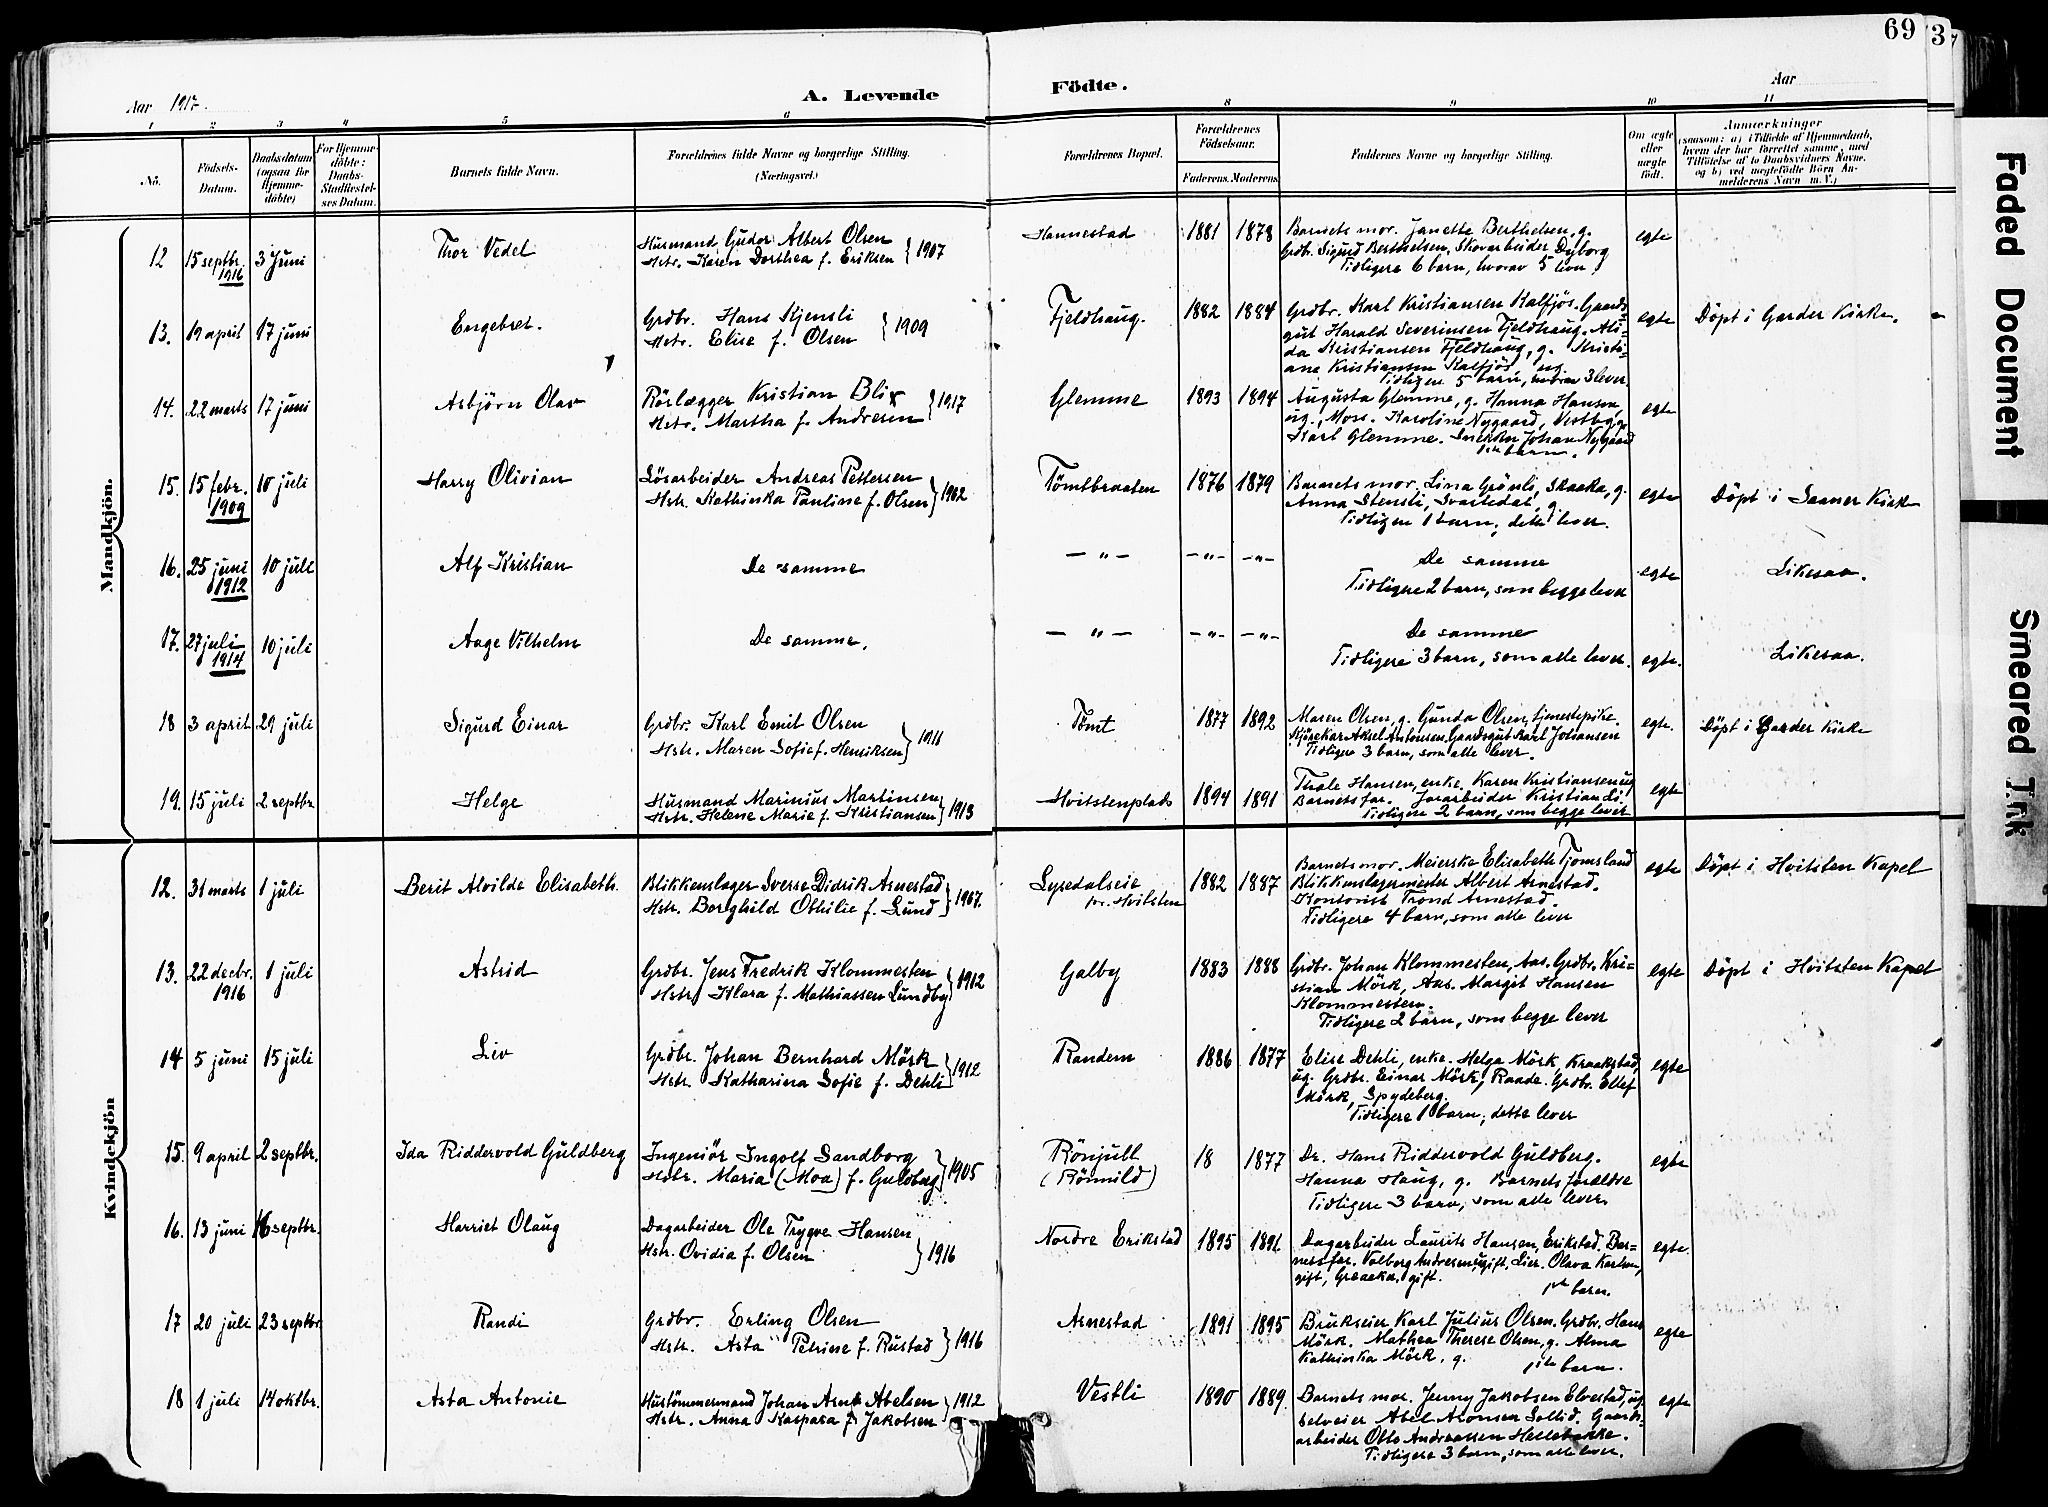 69
3
Aar 1917.
A. Levende
Födte.
Aar
1 2 3 4 5 6 8 9 10 11
No.
Födsels-Datum.
Daabsdatum (ogsaa for Hjemmedöbte)
For Hjemmedöbte: Daabs-Stadfæstelses Datum.
Barnets fulde Navn.
Forældrenes fulde Navne og borgerlige Stilling.
(Næringsvei.)
Forældrenes Bopæl.
Forældrenes Födselsaar.
Faderens. Moderens.
Faddernes Navne og borgerlige Stilling.
Om ægte eller uægte födt.
Anmærkninger
(saasom: a) i Tilfælde af Hjemmedaab, hvem der har forrettet samme, med Tilföielse af to Daabsvidners Navne, og b) ved uægtefödte Börn Anmelderens Navn m. V.)
Mandkjön.
12 15 septbr. 1916 3 juni Thor Vedel
Husmand Gudor Albert Olsen
Hstr. Karen Dorthea f. Eriksen } 1907
Hannestad 1881 1878
Barnets mor. Janette Berthelsen, g.
Grdbr. Sigurd Berthelsen. Skovarbeider Dyborg
Tidligere 6 barn, hvorav 5 lever.
egte
13. 19 april 17 juni Engebret.
Grdbr. Hans Kjensli
Hstr. Elise f. Olsen } 1909
Fjeldhaug. 1882 1884
Grdbr. Karl Kristiansen Kalfjös. Gaards-
gut Harald Severinsen Fjeldhaug. Ali-
da Kristiansen Fjeldhaug, g. Kristi-
ane Kristiansen Kalfjös, ug.
Tidligere 5 barn, hvorav 3 lever.
egte Döpt i Garder Kirke.
14. 22 marts 17 juni Asbjörn Olav
Rörlægger Kristian Blix
Hstr. Martha f. Andresen } 1917
Glemme 1893 1894
Augusta Glemme, g. Hanna Hansen,
ug., Moss. Karoline Nygaard, Vestby, g.
Karl Glemme. Snekker Johan Nygaard
1ste barn.
egte
15. 15 febr. 1909 10 juli Harry Olivian
Lösarbeider Andreas Pettersen
Hstr. Kathinka Pauline f. Olsen } 1902
Tömtbraaten 1876 1879
Barnets mor. Lina Grönli, Skaaka, g.
Anna Stensli, Svartedal, g.
Tidligere 1 barn, dette lever.
egte Döpt i Saaner Kirke
16. 25 juni 1912 10 juli Alf Kristian
De samme
— " — — " — — " —
De samme
Tidligere 2 barn, som begge lever
egte Likesaa.
17. 27 juli 1914 10 juli Aage Vilhelm
De samme.
— " — — " — — " —
De samme
Tidligere 3 barn, som alle lever.
egte. Likesaa.
18 3 april 29 juli Sigurd Einar
Grdbr. Karl Emil Olsen
Hstr. Maren Sofie f. Henriksen } 1911
Tömt 1877 1892
Maren Olsen, g. Gunda Olsen, tjenestepike.
Kjörekar Aksel Antonsen, Gaardsgut Karl Johansen
Tidligere 3 barn, som alle lever.
egte. Döpt i Garder Kirke
19. 15 juli 2 septbr. Helge
Husmand Marinius Martinsen
Hstr. Helene Marie f. Kristiansen } 1913
Hvitstenplads 1894 1891
Thale Hansen, enke. Karen Kristiansen ug
Barnets far. Jorarbeider Kristian Li.
Tidligere 2 barn, som begge lever
egte
Kvindekjön
12. 31 marts 1 juli Berit Alvilde Elisabeth.
Blikkenslager Sverre Didrik Arnestad
Hstr. Borghild Othilie f. Lund } 1907.
Lysedalseie
pr. Hvitsten 1882 1887
Barnets mor. Meierske Elisabeth Tjomsland
Blikkenslagermester Albert Arnestad.
Kontorist Trond Arnestad.
Tidligere 4 barn, som alle lever
egte Döpt i Hvitsten Kapel
13. 22 decbr. 1916 1 juli Astrid
Grdbr. Jens Fredrik Klommesten
Hstr. Klara f. Mathiassen Lundby } 1912
Galby 1883 1888
Grdbr. Johan Klommesten, Aas. Grdbr. Kri-
stian Mörk, Aas. Margit Hansen
Klommesten.
Tidligere 2 barn, som begge lever
egte Döpt i Hvitsten Kapel
14 5 juni 15 juli Liv
Grdbr. Johan Bernhard Mörk
Hstr. Katharina Sofie f. Dehli } 1912
Randem 1886 1877
Elise Dehli, enke. Helga Mörk, Kraakstad,
ug. Grdbr. Einar Mörk, Raade. Grdbr. Ellef
Mörk, Spydeberg.
Tidligere 1 barn, dette lever
egte
15. 9 april 2 septbr. Ida Riddervold Guldberg
Ingeniör Ingolf Sandborg
Hstr. Maria (Moa) f. Guldberg } 1905
Rönjult
(Römild) 18 1877
Dr. Hans Riddervold Guldberg.
Hanna Haug, g. Barnets forældre
Tidligere 3 barn, som alle lever.
egte
16. 13 juni 16 septbr. Harriet Olaug
Dagarbeider Ole Trygve Hansen
Hstr. Ovidia f. Olsen } 1916
Nordre Erikstad 1895 1891
Dagarbeider Laurits Hansen, Erikstad. Bar-
nets far. Valborg Andresen, ugift, Lier. Olava Karlsen,
gift, Greaaker, gift.
1ste barn.
egte.
17 20 juli 23 septbr. Randi
Grdbr. Erling Olsen
Hstr. Asta Petrine f. Rustad } 1916
Arnestad 1891 1895
Brukseier Karl Julius Olsen. Grdbr. Hans
Mörk. Mathea Therese Olsen, g. Alma
Kathinka Mörk, g.
1ste barn.
egte
18 1 juli 14 oktbr. Asta Antonie
Hustömmermand Johan Arnt Abelsen
Hstr. Anna Kaspara f. Jakobsen } 1912
Vestli 1890 1889.
Barnets mor. Jenny Jakobsen Elvestad, ug.
Selveier Abel Aronsen Sollid. Gaards-
arbeider Otto Andreassen Hellebække.
Tidligere 3 barn, som alle lever.
egte
Faded Document
Smeared Ink